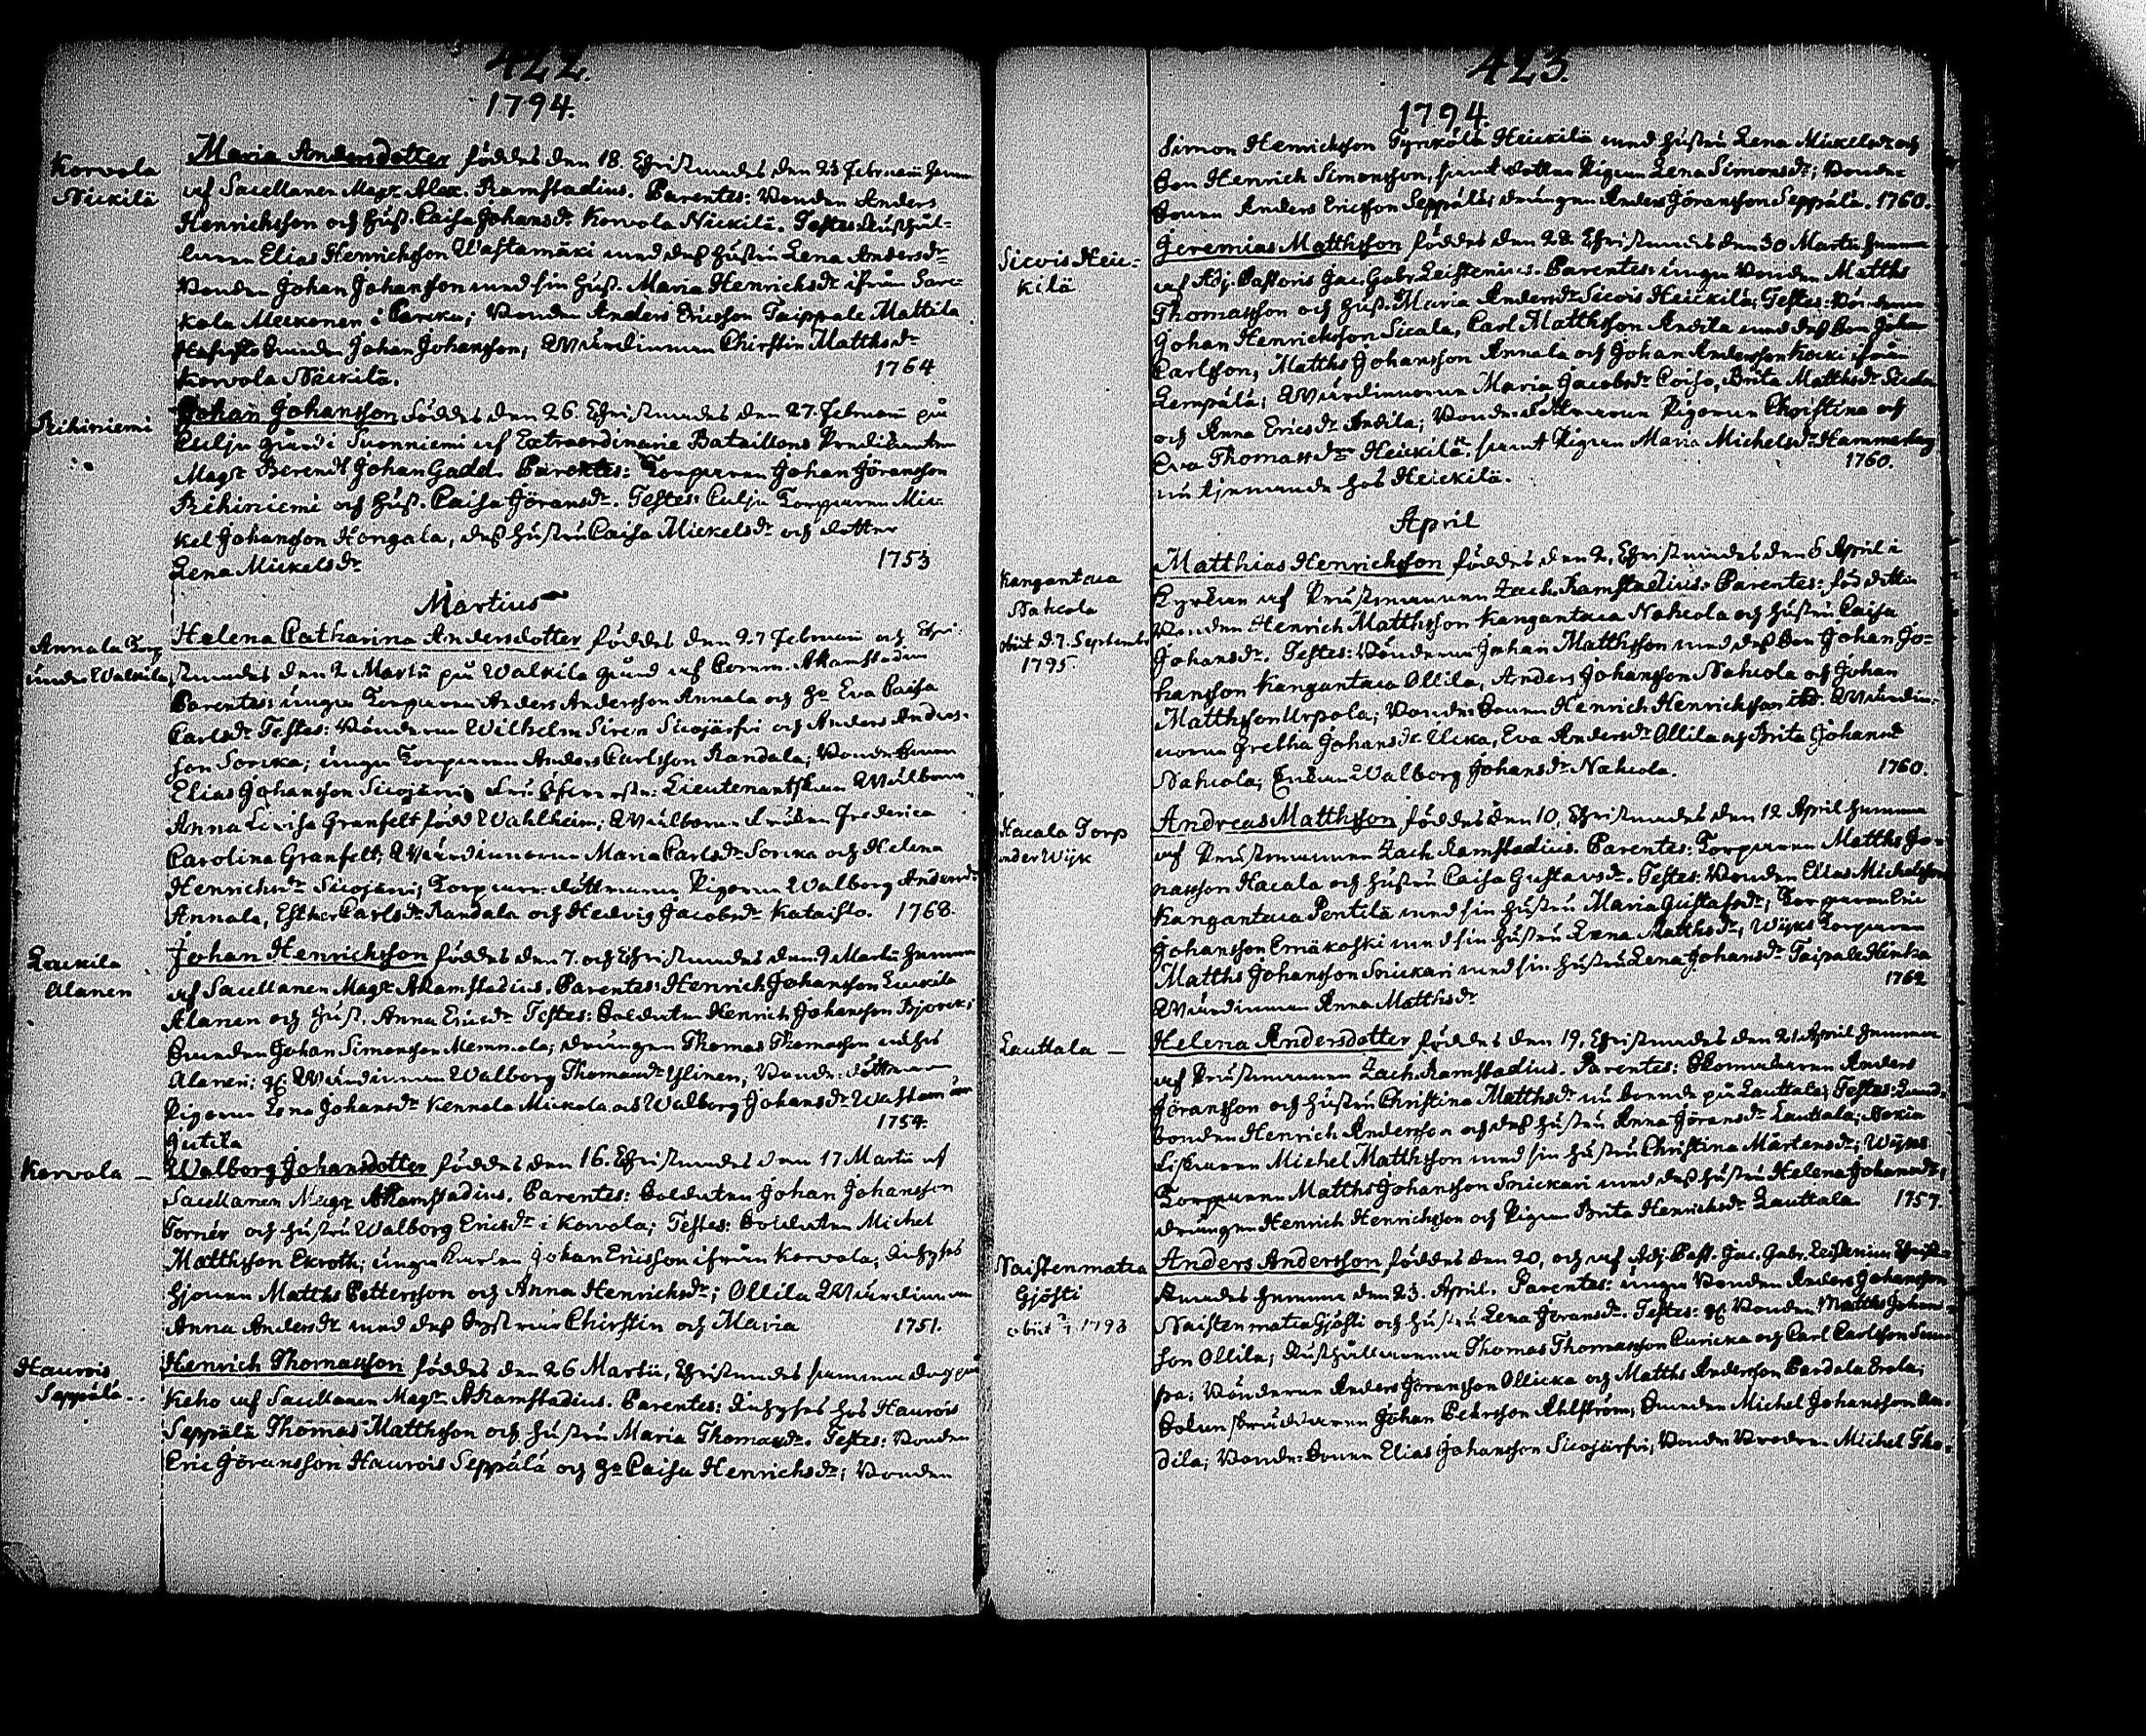 422.
1794.
Korvola
Nickilä
Maria Andersdotter föddes den 18. Christnades den 23 Februarii hemma
af Sacellanen Magr. Alex. Ramstadius. Parentes: Bonden Anders
Henrichsson och Hust. Caisa Johansdr Korvola Nickilä. Testes: Rusthål-
laren Elias Henrichsson Wastamäki med dess hustru Lena Andersdr
Bonden Johan Johansson med sin Hust. Maria Henrichsdr ifrån Sar-
kola Meckonen i; Bonden Anders Ericsson Taippale Mattila
Johan Johansson; Wärdinnan Chirstin Matthsdr
Korvola Nickilä. 1764
Rihiniemi
Johan Johansson föddes den 26. Christnades den 27. Februarii på
Culju gård i Suonniemi af Extraordinarie Bataillons Predikanten
Magr Berendt Johan Gadd. Parentes: Torparen Johan Jöransson
Rihiniemi och Hust. Caisa Jöransdr. Testes: Culju Torparen Mic-
kel Johansson Hongala, dess hustru Caisa Mickelsdr och dotter
Lena Mickelsdr 1753
Martius
Annala Torp
under Walkila
Helena Catharina Andersdotter föddes den 27 Februarii och Chri-
stnades den 2 Martii på Walkila gård af Comm. ARamstadius
Parentes: unga Torparen Anders Andersson Annala och H. Eva Caisa
Carlsdr. Testes: Bönderna Wilhelm Siren Siojärfvi och Anders Anders-
son Sorcka; unga Torparen Anders Carlsson Randala; Bondesonen
Elias Johansson Siojärvi; Lieutenantskan Wälborna
Anna Lovisa Granfelt född Wahlheim; Wälborna Fröken Frederica
Carolina Granfelt; Wärdinnorna Maria Carlsdr Sorcka och Helena
Henrichsdr Siojärvi; Torpare döttrarna Pigorna Walborg Andersdr
Annala, Esther Carlsdr Randala och Hedvig Jacobsdr Kataisto. 1768.
Luckila
Alanen
Johan Henrichsson föddes den 7. och Christnades den 9 Martii hemma
af Sacellanen Magr ARamstadius. Parentes: Henrich Johansson Luckila
Alanen och Hust. Anna Ericsdr Testes: Soldaten Henrich Johansson
Johan Simonsson Memmola; drängen Thomas Thomasson
Alanen; Wärdinnan Walborg Thomasdr Ylinen, Bonde-döttrarna
Pigorna Lena Johansdr Kennola Mickola och Walborg Johansdr
Jutila 1754.
Korvola —
Walborg Johansdotter föddes den 16. Christnades den 17 Martii af
Sacellanen Magr ARamstadius. Parentes: Soldaten Johan Johansson
Tornér och hustru Walborg Ericsdr i Korvola; Testes: Soldaten Michel
Matthsson Ekroth; unga karlen Johan Ericsson ifrån Korvola; Inhyses
hjonen Matths Pettersson och Anna Henrichsdr; Ollila Wärdinnan
Anna Andersdr med dess Systrar Chirstin och Maria 1751.
Haurois
Seppälä -
Henrich Thomasson föddes den 26 Martii, Christnades samma dag på
Keho af Sacellanen Magr ARamstadius. Parentes: Inhyses hos Haurois
Seppälä Thomas Matthsson och hustru Maria Thomasdr. Testes: Bonden
Eric Jöransson Haurois Seppälä och H. Caisa Henrichsdr; Bonden
423.
1794.
Simon Henrichsson Tyrköla Heickilä med hustru Lena Mickelsdr och
son Henrich Simonsson, samt dotter Pigan Lena Simonsdr; Bonde-
sonen Anders Ericsson Seppälä; drängen Anders Jöransson Seppälä. 1760.
Siovis Heic-
kilä
Jeremias Matthsson föddes den 28. Christnades den 30 Martii hemma
af Adj. Pastoris Jac. Gabr. Leistenius. Parentes: unga Bonden Matths
Thomasson och Hust. Maria Andersdr Siovis Heickilä; Testes: Bönderna
Johan Henrichsson Sicala, Carl Matthsson Andila med dess son Johan
Carlsson, Matths Johansson Annala och Johan Andersson ifrån
Lempälä; Wärdinnorna Maria Jacobsdr, Brita Matthsdr Sicala
och Anna Ericsdr Andila; Bonde-döttrarna Pigorna Christina och
Eva Thomasdr Heickilä, samt Pigan Maria Michelsdr Hammarberg
nu tjenande hos Heickilä. 1760.
April
Kangantaca
Nahcola
obiit d. 7. Septembr
1795.
Matthias Henrichsson föddes den 2. Christnades den 6 April i
Kyrkan af Prostmannen Zach. Ramstadius. Parentes:
Bonden Henrich Matthsson Kangantaca Nahcola och hustru Caisa
Johansdr. Testes: Bönderna Johan Matthsson med dess Son Johan Jo-
hansson Kangantaca Ollila, Anders Johansson Nahcola och Johan
Matthsson Urpola; Bonde Sonen Henrich Henrichsson ibd. Wärdin-
norna Gretha Johansdr, Eva Andersdr Ollila och Brita Johansdr
Nahcola; Enkan Walborg Johansdr Nahcola. 1760.
Hacala Torp
under Wijk
Andreas Matthsson föddes den 10. Christnades den 12 April hemma
af Prostmannen Zach. Ramstadius. Parentes: Torparen Matths Jo-
nasson Hacala och hustru Caisa Gustavsdr. Testes: Bonden Elias Michelsson
Kangantaca Pentilä med sin hustru Maria Gustafsdr; Torparen Eric
Johansson Emäkoski med sin hustru Lena Matthsdr; Wijks Torparen
Matths Johansson Snickari med sin hustru Lena Johansdr Taipale Hinka
Wärdinnan Anna Matthsdr 1762
Lauttala —
Helena Andersdotter föddes den 19. Christnades den 21 April hemma
af Prostmannen Zach. Ramstadius. Parentes: Skomakaren Anders
Jöransson och hustru Christina Matthsdr nu boende på Lauttala; Testes: Land-
bonden Henrich Andersson och dess hustru Anna Jöransdr Lauttala; Nokia
Fiskaren Michel Matthsson med sin hustru Christina Mårtensdr; Wijks
Torparen Matths Johansson Snickari med dess hustru Helena Johansdr;
drängen Henrich Henrichsson och Pigan Brita Henrichsdr Lauttala. 1757.
Naistenmatca
Gjösti
obiit 1793
Anders Andersson föddes den 20, och af Adj. Past. Jac. Gabr. Leistenius Christ-
nades hemma den 23. April. Parentes: unga Bonden Anders Johansson
Naistenmatca Gjösti och hustru Lena Jöransdr. Testes: Bonden Matths Johans-
son Ollila; Rusthållarena Thomas Thomasson Curicka och Carl Carlsson
; Bönderna Anders Jöransson Ollicka och Matths Andersson Pardala;
Johan Pehrsson Ahlström, Michel Johansson An-
dila; Bonde-Sonen Elias Johansson Siojärfvi; Bonde Brodren Michel Tho-